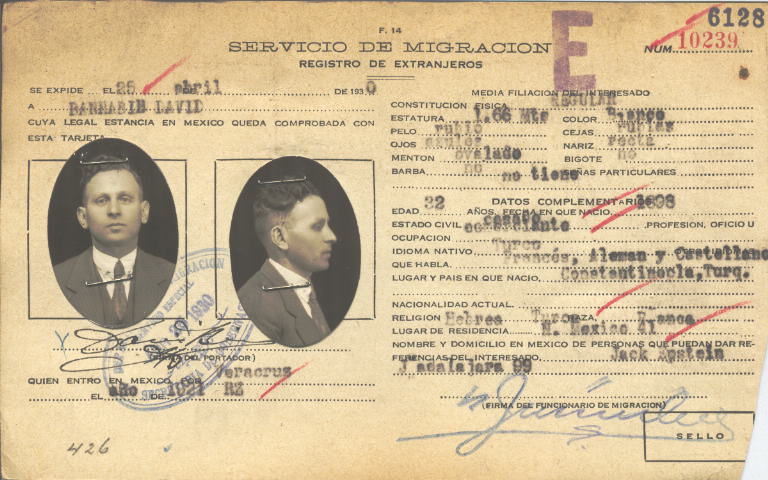 F. 14
SERVICIO DE MIGRACION
REGISTRO DE EXTRANJEROS
E
6128
NUM. 10239
SE EXPIDE EL 25 abril DE 1930
A BARHABIB DAVID
CUYA LEGAL ESTANCIA EN MEXICO QUEDA COMPROBADA CON
ESTA TARJETA
(FIRMA DEL PORTADOR)
QUIEN ENTRO EN MEXICO POR Veracruz
EL año DE 1921 RZ
426
MEDIA FILIACION DEL INTERESADO
CONSTITUCION FISICA REGULAR
ESTATURA 1.66 Mts COLOR Blanco
PELO rubio CEJAS rubias
OJOS azules NARIZ recta
MENTON ovalado BIGOTE no
BARBA no SEÑAS PARTICULARES
no tiene
DATOS COMPLEMENTARIOS
EDAD 32 AÑOS. FECHA EN QUE NACIO 1898
ESTADO CIVIL casado PROFESION, OFICIO U
OCUPACION comerciante
IDIOMA NATIVO Turco
QUE HABLA Francés, Aleman y Castellano
LUGAR Y PAIS EN QUE NACIO Constantinopla, Turq.
NACIONALIDAD ACTUAL
RELIGION Hebrea Turc RAZA Blanca
LUGAR DE RESIDENCIA N. Mexico 41
NOMBRE Y DOMICILIO EN MEXICO DE PERSONAS QUE PUEDAN DAR RE-
FERENCIAS DEL INTERESADO Jack Epstein
adalajara 99
(FIRMA DEL FUNCIONARIO DE MIGRACION)
SELLO